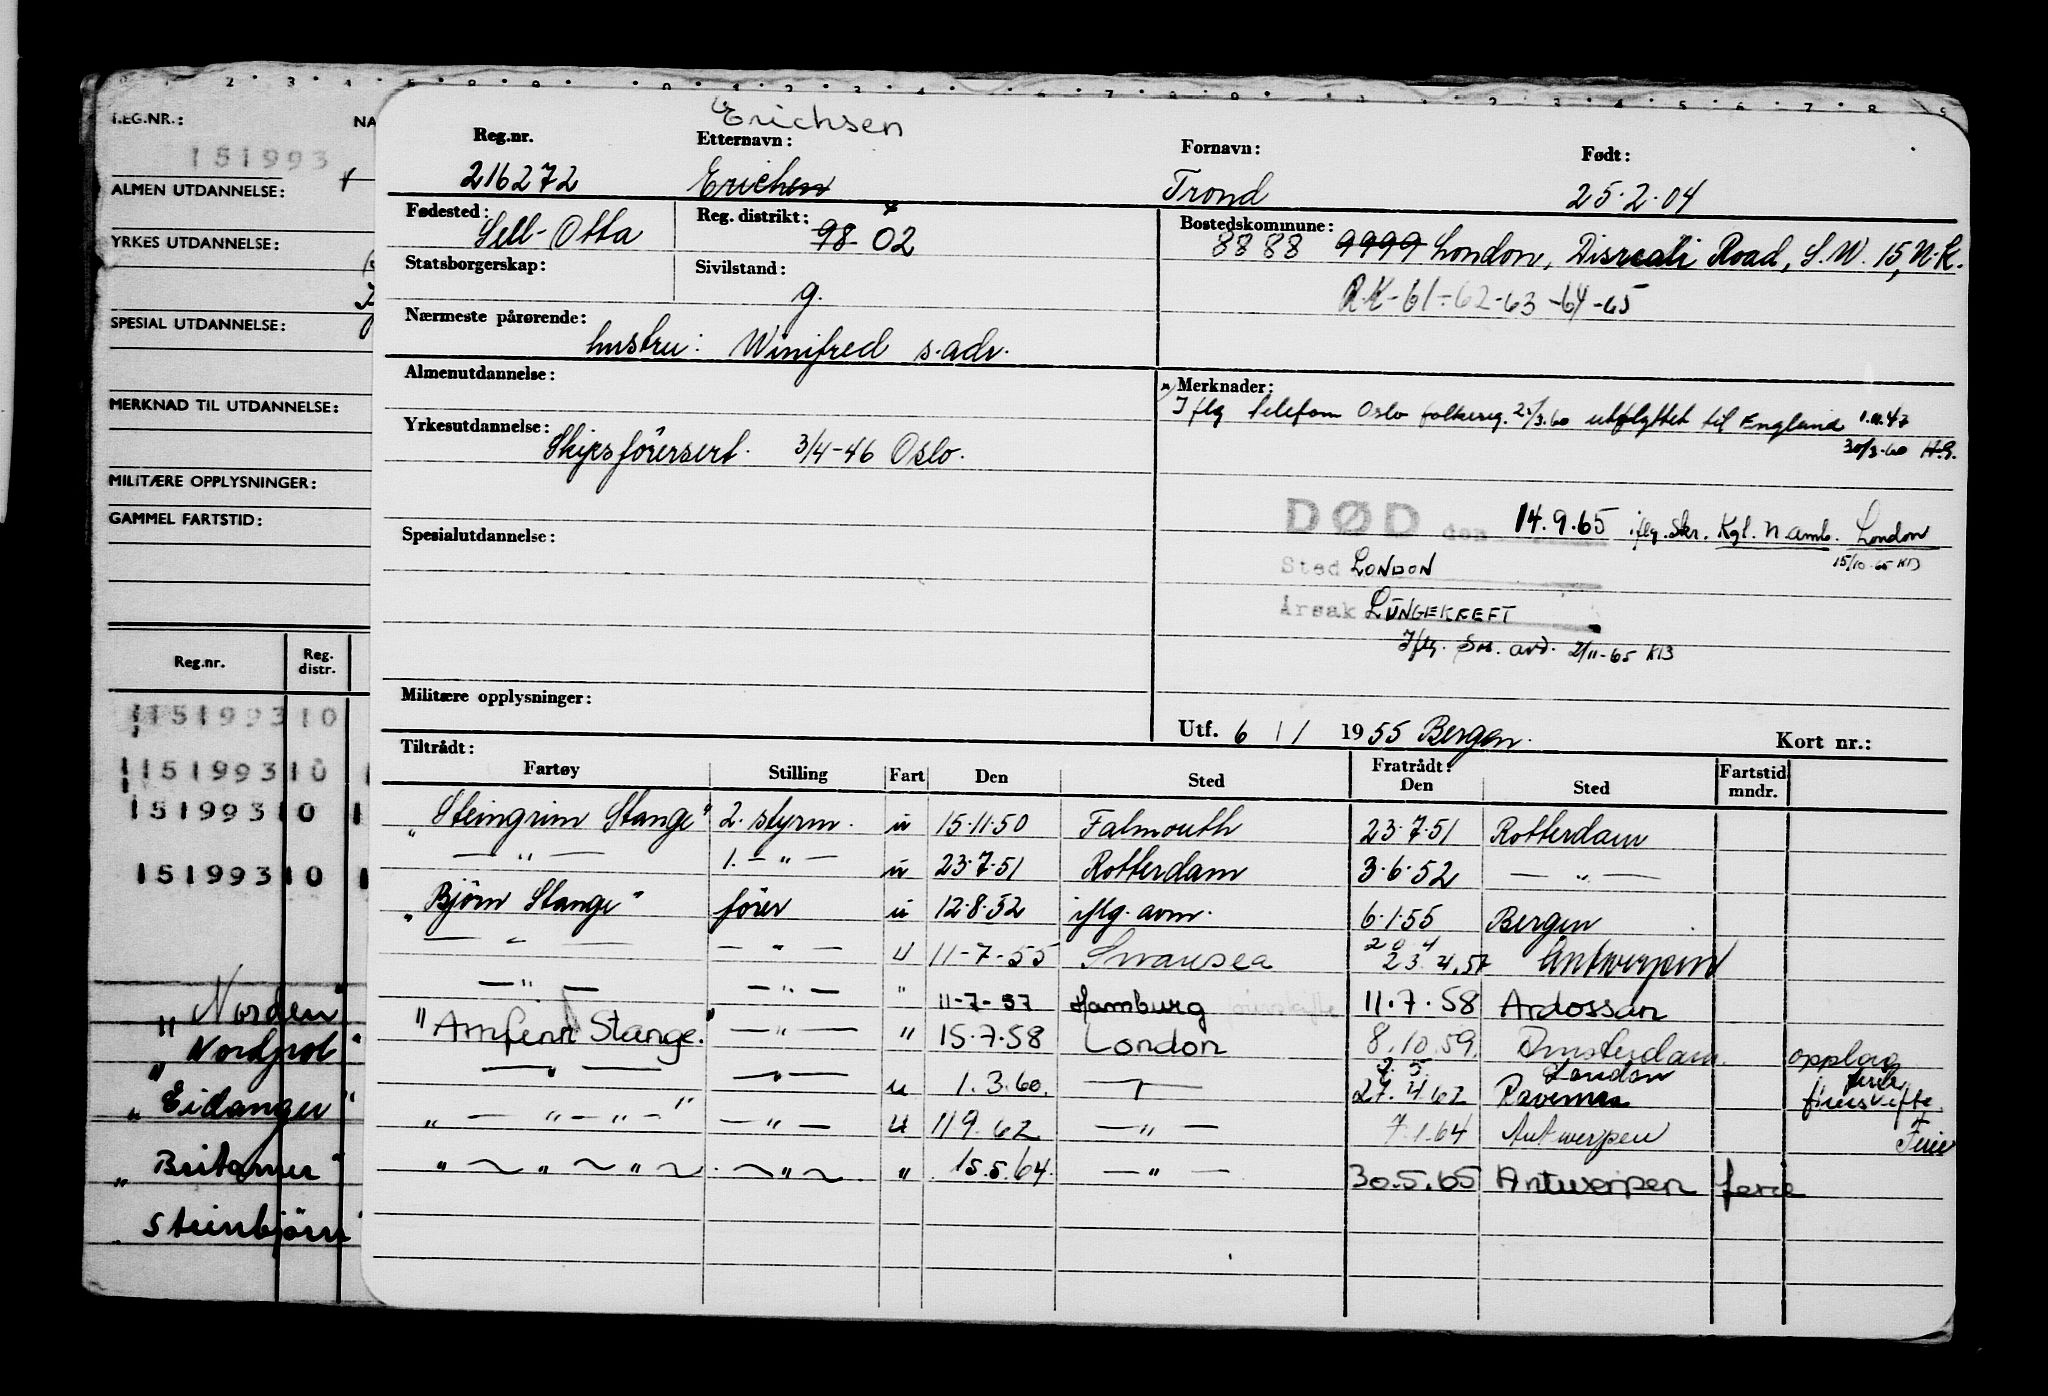 REG.NR.:
151993
ALMEN UTDANNELSE:
YRKES UTDANNELSE:
SPESIAL UTDANNELSE:
MERKNAD TIL UTDANNELSE:
MILITÆRE OPPLYSNINGER:
GAMMEL FARTSTID:
Reg.nr. Reg. distr.
151993 10
151993 10
151993 10
151993 10
"Norden"
"Nordpol"
"Eidanger"
"Britamer"
"Steinbjörn"
Erichsen
Reg.nr. Etternavn: Fornavn: Født:
216272 Erichen Trond 25.2.04
Fødested: Reg. distrikt: Bostedskommune:
Sell-Otta 98 02 8888 9999 London, Disraeli Road, S.W. 15, U.K.
Statsborgerskap: Sivilstand:
g. RK-61-62-63-64-65
Nærmeste pårørende:
hustru: Winifred s.adr.
Almenutdannelse: Merknader:
Iflg telefon Oslo folkereg. utflyttet til England
30/3-60 H.G.
Yrkesutdannelse:
Skipsförersert. 3/4-46 Oslo.
DØD den 14.9.65 iflg. Skr. Kgl. N amb. London
15/10-65 KB
Spesialutdannelse:
Sted LONDON
Årsak LUNGEKREFT
Iflg. Sos. avd. 2/11-65 KB
Militære opplysninger:
Utf. 6/1 1955 Bergen. Kort nr.:
Tiltrådt: Fratrådt:
Fartøy Stilling Fart Den Sted Den Sted Fartstid mndr.
"Steingrim Stange" 2. styrm. u 15.11.50 Falmouth 23.7.51 Rotterdam
— " — 1. — " — u 23.7.51 Rotterdam 3.6.52 — " —
"Björn Stange" förer u 12.8.52 iflg. avm. 6.1.55 Bergen
— " — — " — u 11-7-55 Swansea 23.4.57 Antwerpen
— " — — " — " 11-7-57 Hamburg 11.7.58 Ardossan
"Arnfinn Stange." — " — " 15.7.58 London 8.10.59 Amsterdam. opplag
— " — — " — u 1.3.60. — " — 27.4.62 London Ravenna ferie
" — " — " — " — " — u 11.9.62 — " — 7.1.64 Antwerpen Ferie
" ~ " ~ " ~ ~ " ~ " 15.5.64. — " — 30.5.65 Antwerpen ferie